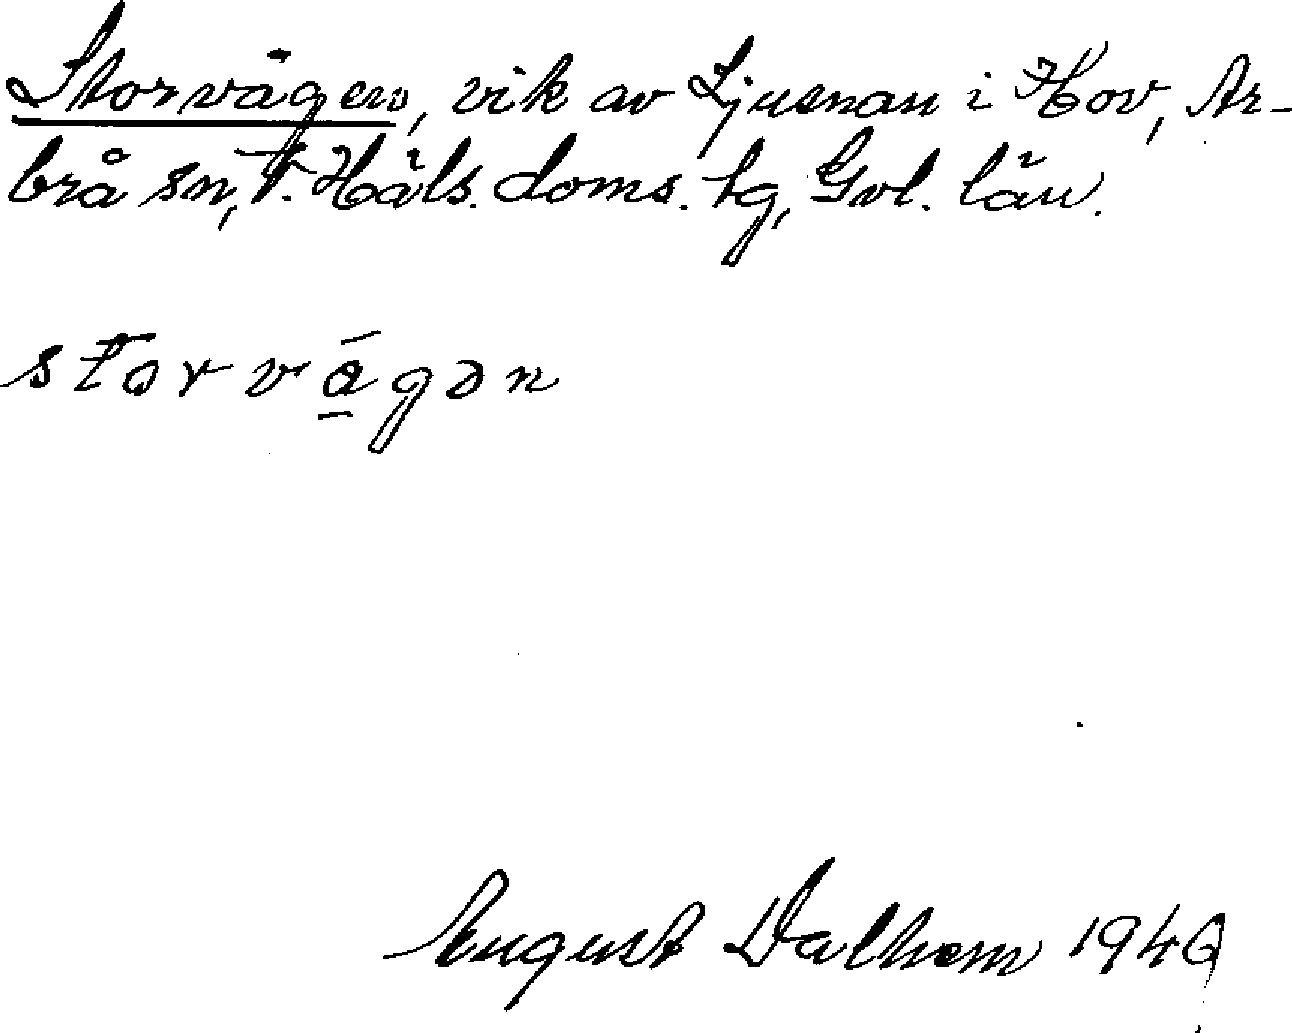 Storvågen, vik av Ljusnan i Hov, Ar-
brå sn, V. Häls. doms. tg, Gvl. län.
storvágən
August Dalhem 1940